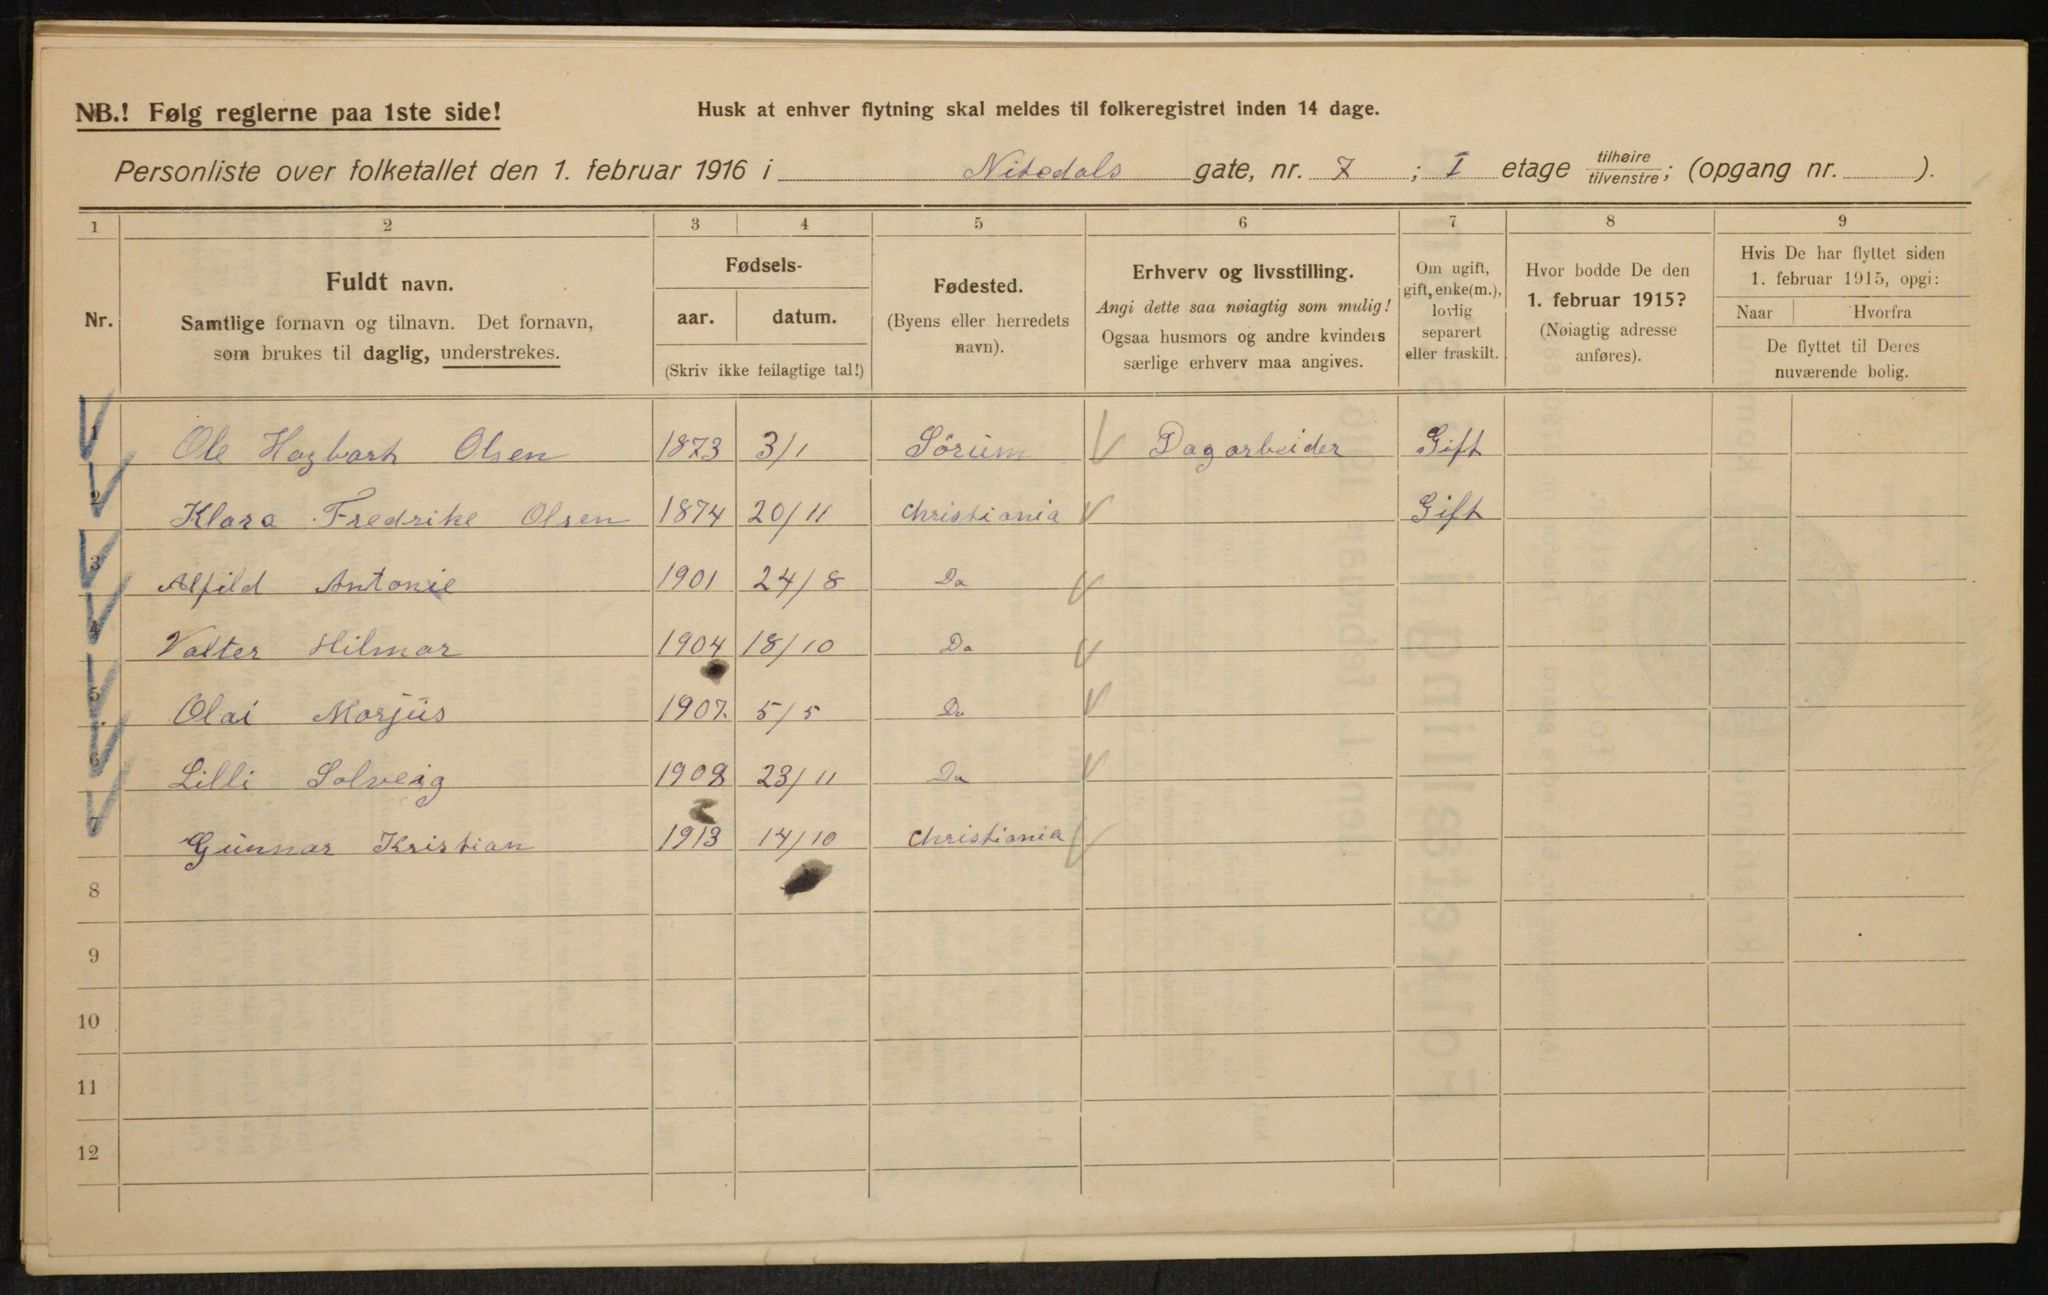 NB.! Følg reglerne paa 1ste side!
Husk at enhver flytning skal meldes til folkeregistret inden 14 dage.
Personliste over folketallet den 1. februar 1916 i Nitedals gate, nr. 7 ; I etage tilhøire tilvenstre; (opgang nr. ).
1 2 3 4 5 6 7 8 9
Nr.
Fuldt navn.
Samtlige fornavn og tilnavn. Det fornavn,
som brukes til daglig, understrekes.
Fødsels-
aar. datum.
(Skriv ikke feilagtige tal!)
Fødested.
(Byens eller herredets
navn).
Erhverv og livsstilling.
Angi dette saa nøiagtig som mulig!
Ogsaa husmors og andre kvinders
særlige erhverv maa angives.
Om ugift,
gift, enke(m.),
lovlig
separert
eller fraskilt.
Hvor bodde De den
1. februar 1915?
(Nøiagtig adresse
anføres).
Hvis De har flyttet siden
1. februar 1915, opgi:
Naar Hvorfra
De flyttet til Deres
nuværende bolig.
1 Ole Hagbart Olsen 1873 3/1 Sörum Dagarbeider Gift
2 Klara Fredrike Olsen 1874 20/11 Christiania Gift
3 Alfild Antonie 1901 24/8 Do
4 Valter Hilmar 1904 18/10 Do
5 Olai Marjüs 1907. 5/5 Do
6 Lilli Solveig 1908 23/11 Do
7 Günnar Kristian 1913 14/10 Christiania
8
9
10
11
12